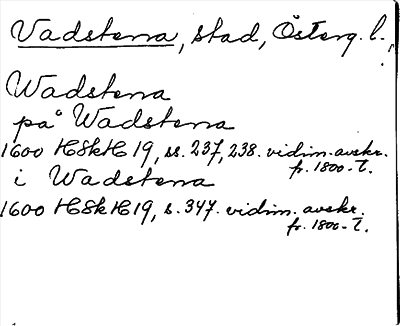 Vadstena, stad, Österg. l.,
Wadstena
på Wadstena
1600 HSkH 19, ss. 237, 238. vidim. avskr.
fr. 1800-t.
i Wadstena
1600 HSkH 19, s. 347. vidim. avskr.
fr. 1800-t.